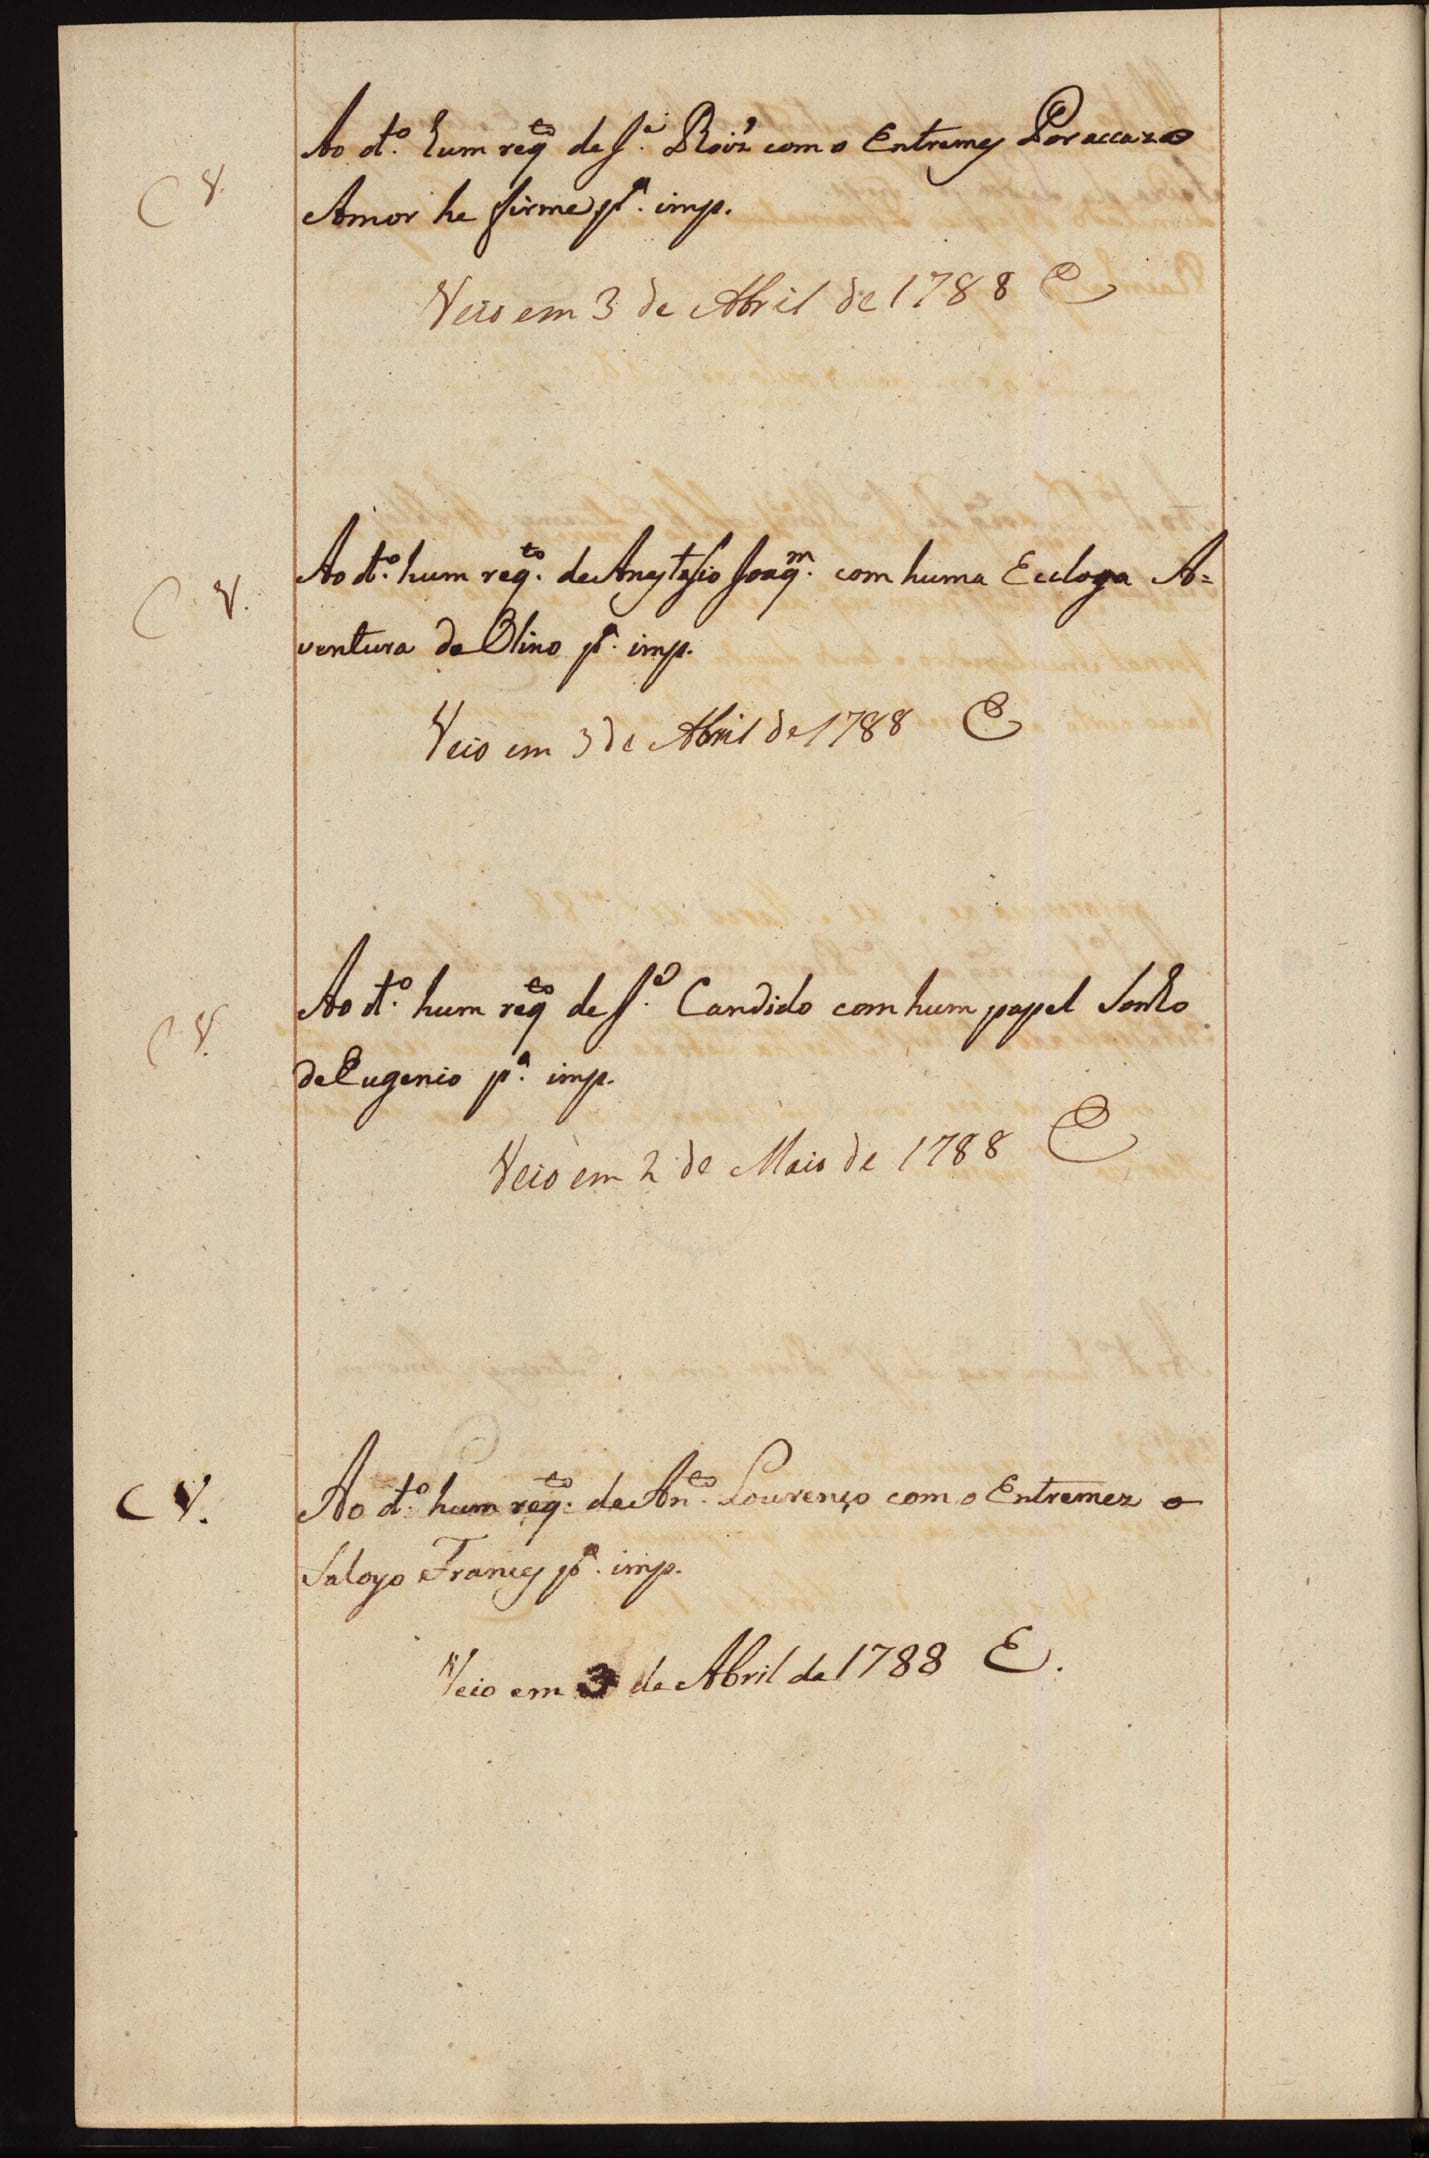 C V.
Ao d.º hum req.to de J.e Roiz com o Entremes Por accazo
Amor he firme p.a imp.
Veio em 3 de Abril de 1788 E
C V.
Ao d.º hum req.to de Anastasio Joaq.m com huma Ecloga A=
ventura de Olino p.a imp.
Veio em 3 de Abril de 1788 E
C V.
Ao d.º hum req.to de J.e Candido com hum papel Sonho
de Eugenio p.a imp.
Veio em 2 de Maio de 1788 E
C V.
Ao d.º hum req.to de An.to Lourenço com o Entremez o
Saloyo Frances p.a imp.
Veio em 3 de Abril de 1788 E.